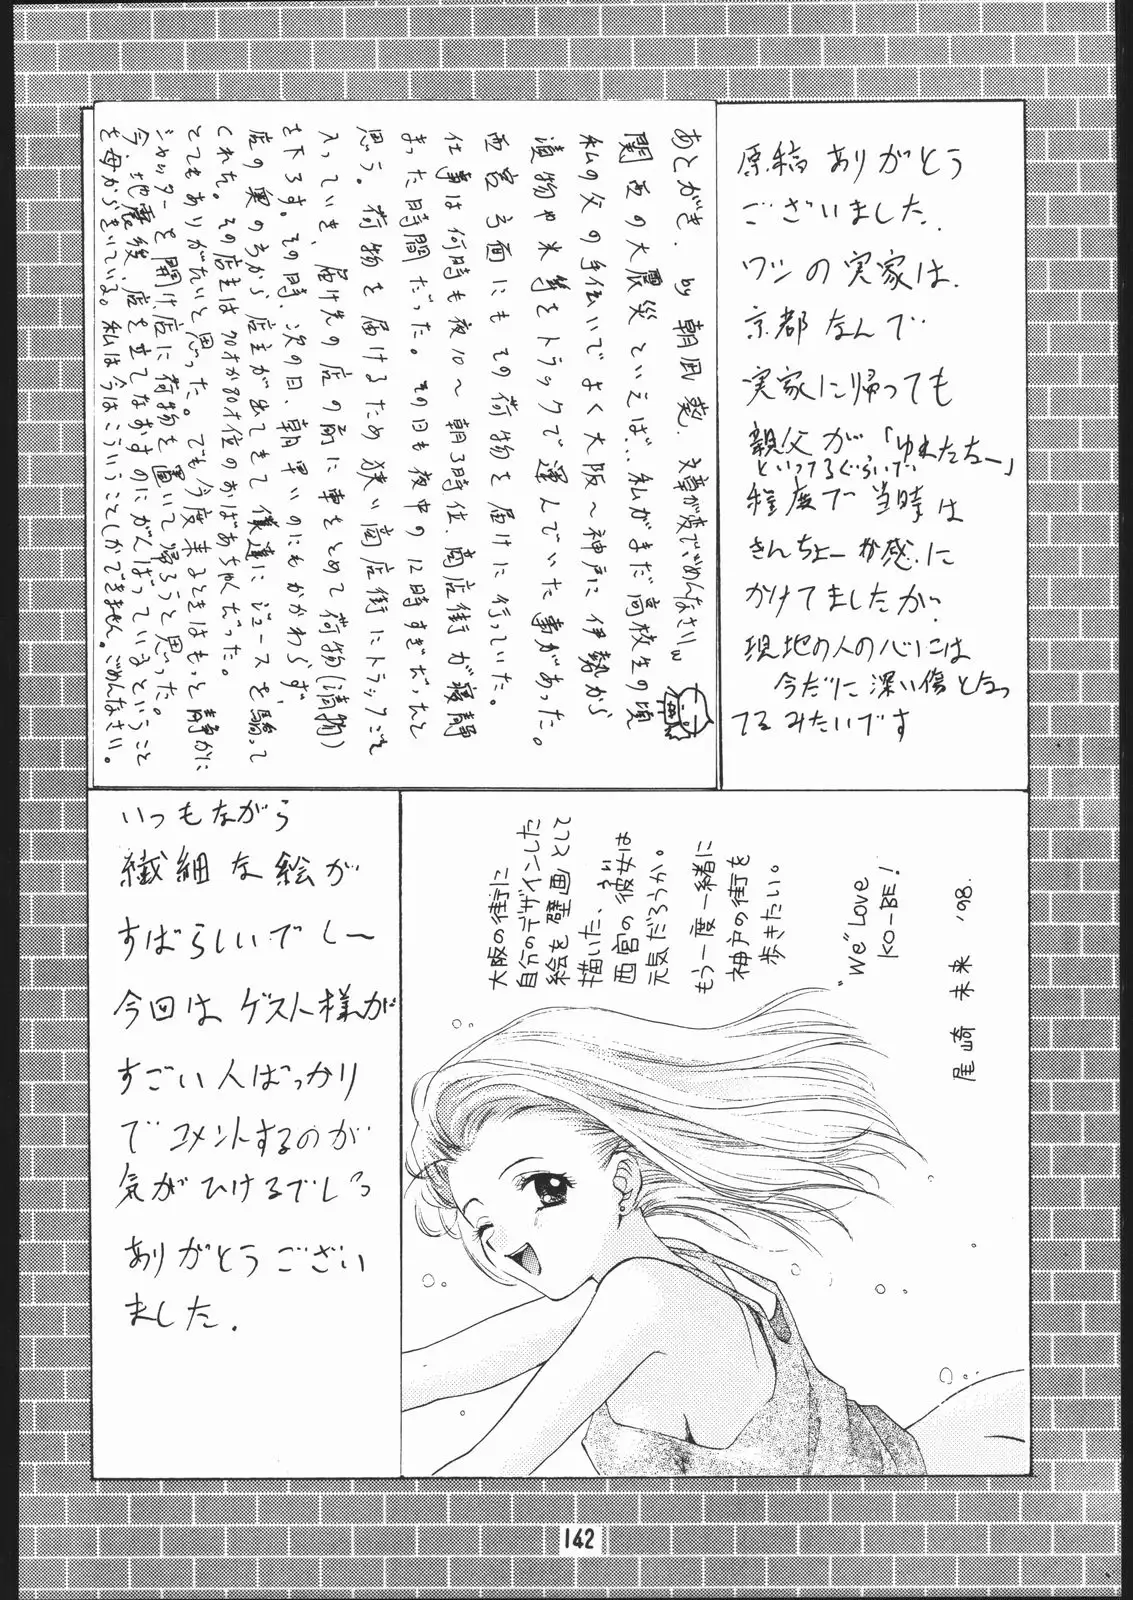 原稿ありがとう
ございました.
ワシの実家は.
京都なんで
実家に帰っても
親父が「ゆれたたー」
といってるぐらいで
程度で当時は
きんちょー感に
かけてましたが.
現地の人の心には
今だに深い傷となっ
てるみたいです
あとがき. by 朝凪葵. 文章が変でごめんなさいw
関西の大震災といえば… 私がまだ高校生の頃
私の父の手伝いでよく大阪〜神戸に伊勢から
漬物や米等をトラックで運んでいた事があった。
西宮方面にもその荷物を届けに行っていた。
仕事は何時も夜10〜朝3時位、商店街が寝静
まった時間だった。その日も夜中の12時すぎだったと
思う。荷物を届けるため狭い商店街にトラックごと
入っていき、届け先の店の前に車をとめて荷物(漬物)
を下ろす。その時、次の日、朝早いのにもかかわらず
店の奥の方から店主が出てきて僕達にジュースを騎って
くれた。その店主は70才か80才位のおばあちゃんだった。
とてもありがたいと思った。でも今度来るときはもっと静かに
シャッターを開け店に荷物を置いて帰ろうと思った。
今、地震後、店を立てなおすのにがんばっているということ
を母からきいている。私は今はこういうことしかできません。ごめんなさい。
いつもながら
繊細な絵が
すばらしいでしー
今回はゲスト様が
すごい人ばっかり
でコメントするのが
気がひけるでしっ
ありがとうござい
ました.
大阪の街に
自分のデザインした
絵を壁画として
描いた、
西宮の彼女は
元気だろうか。
もう一度一緒に
神戸の街を
歩きたい。
"We" Love
KO-BE!
尾崎未来 '98.
142